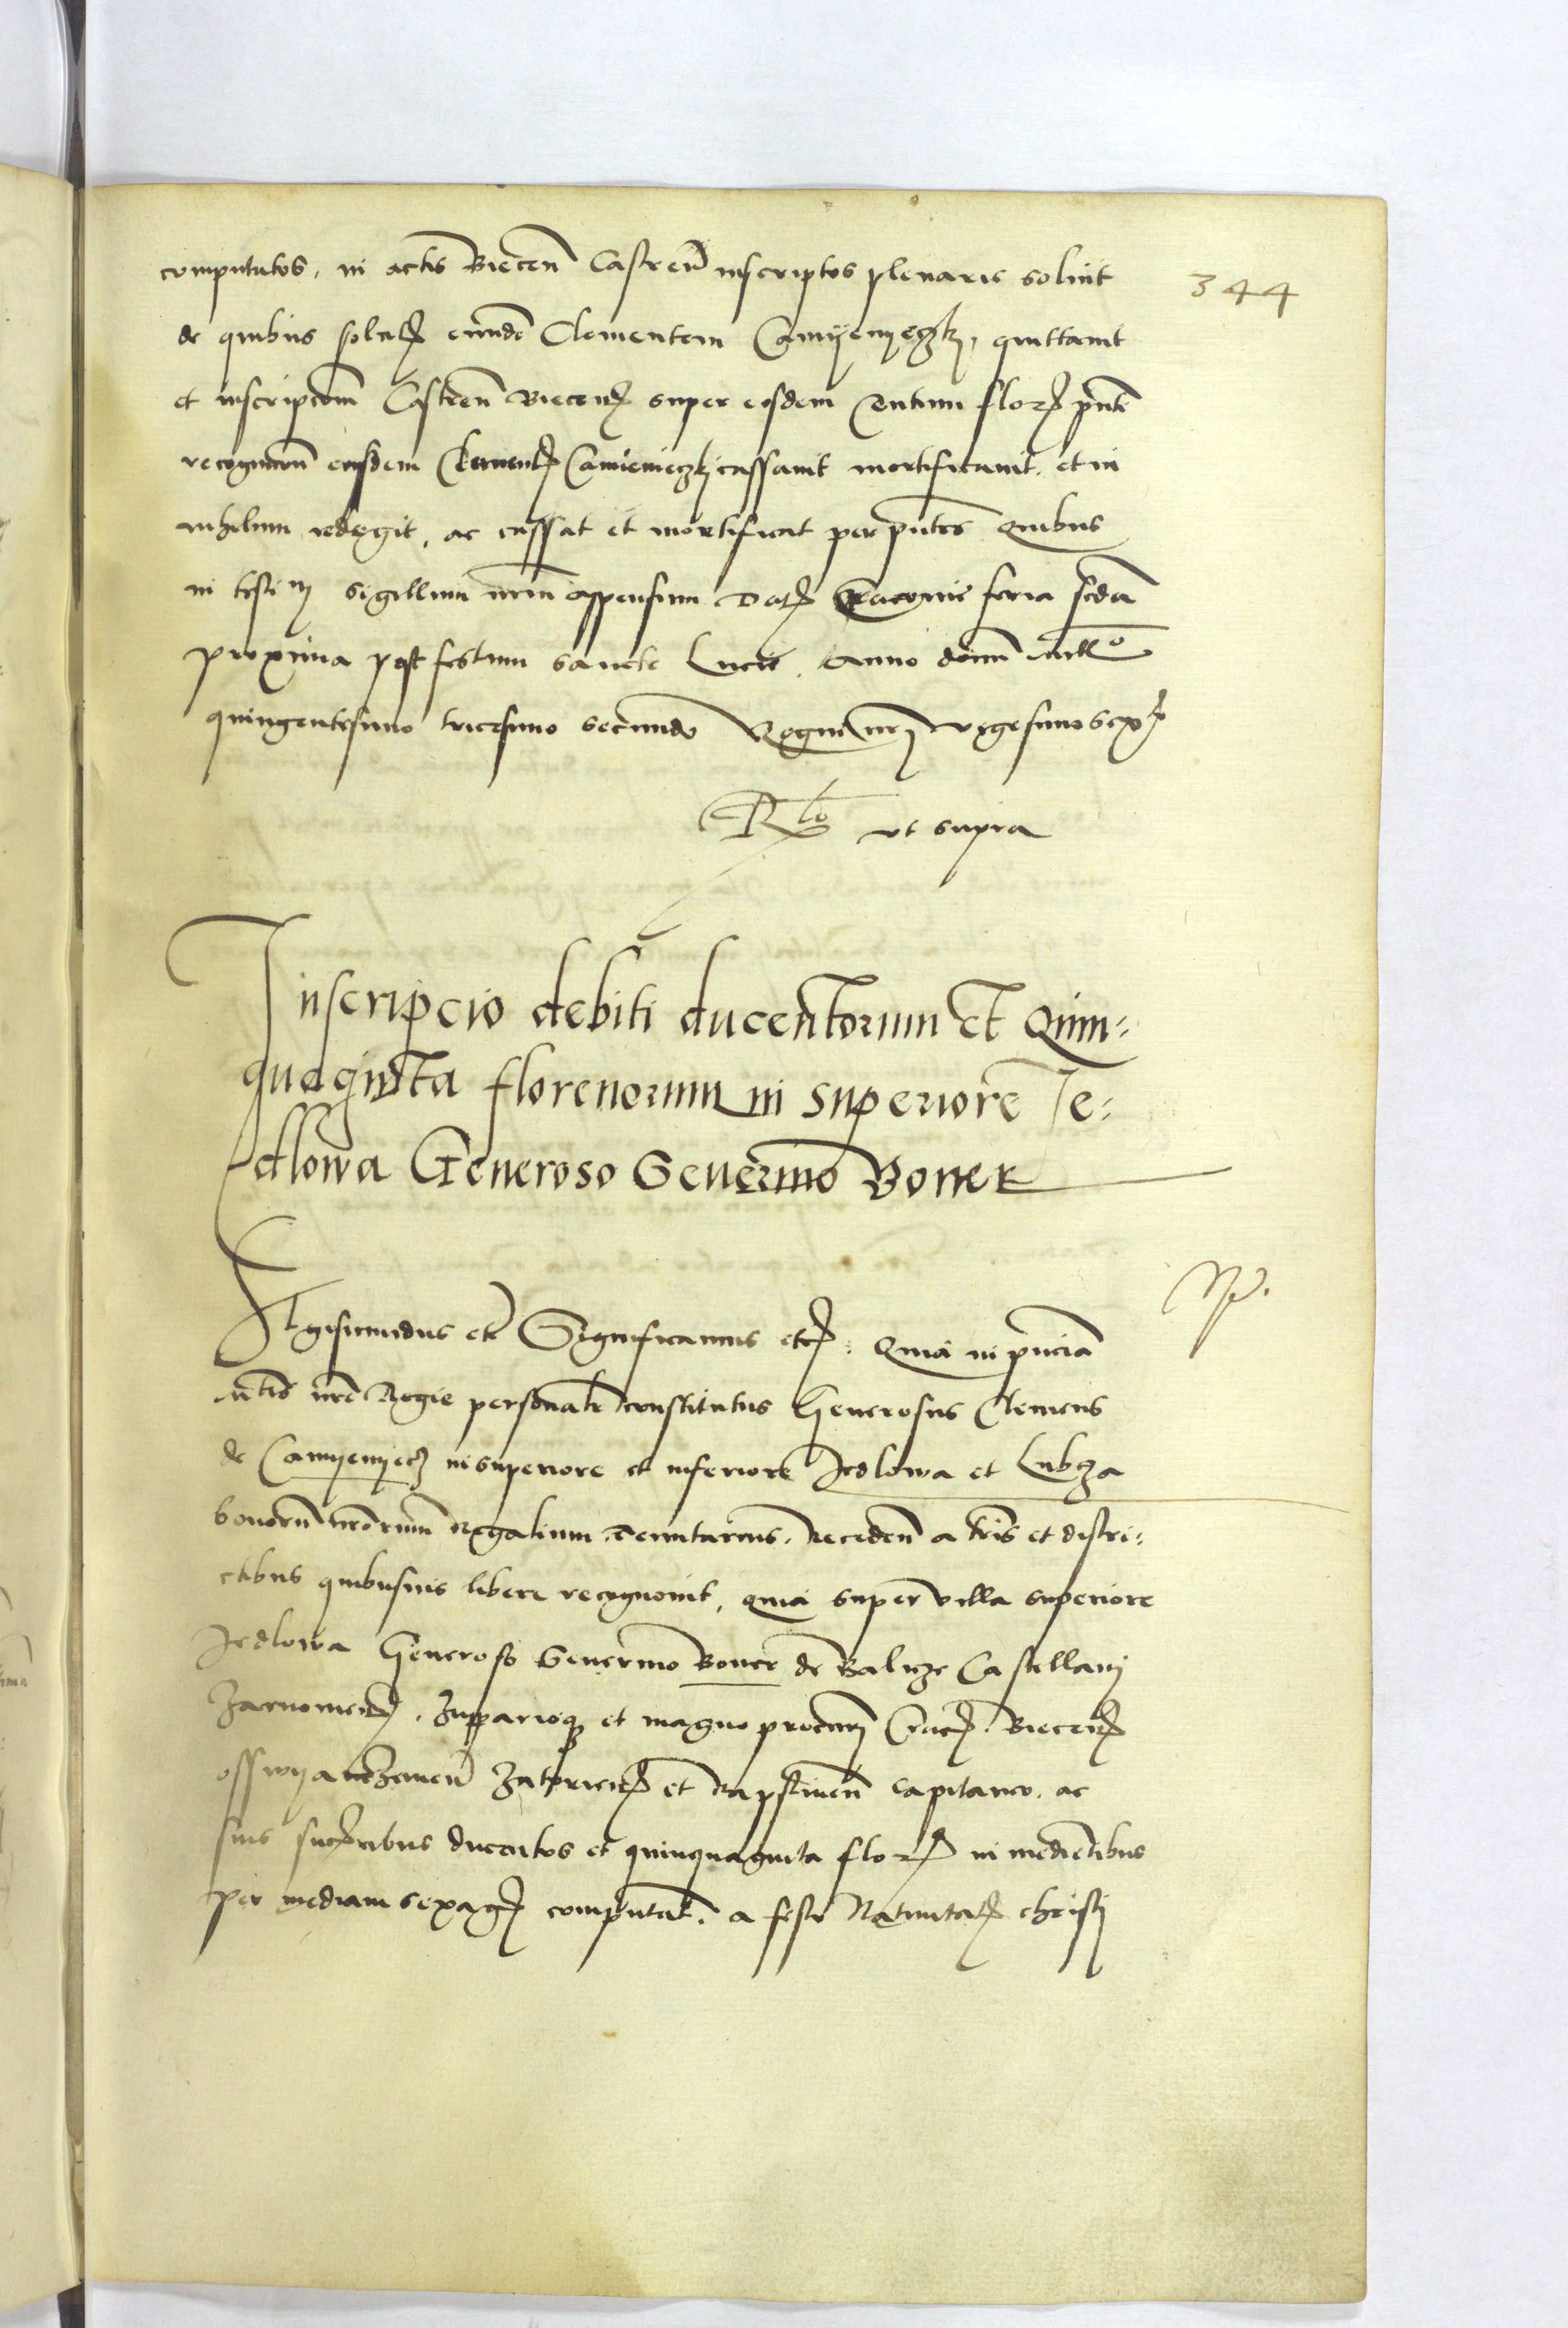 344
computatos, in actis Biecen̄ Castren̄ inscriptos plenarie soluit
de quibus solut[is] eund̄e Clementem Camyenyeczky, quittauit
et inscripcōm Castren̄ Biecen̄ super eosdem Centum flor[enos] pn̄ti
recognicōn eiusdem Clement[is] Camienieczky cassauit mortificauit, et in
nihilum redegit, ac cassat et mortificat per pn̄tes Quibus
in testi[m] sigillum nrm̄ appensum Dat[um] Cracouie feria scd̄a
proxima post festum sancte Lucie. Anno domī millo
quingentesimo tricesimo secundo Regni nrj vigesimosexto
Rlo vt supra
Inscripcio debiti ducentorum et Quin=
quaginta florenorum in superiore Je=
dlowa Generoso Seuerino Boner
Sigismundus etc Significamus etc. Quia in pn̄cia
Mtis nrē Regie personalr̄ constitutus Generosus Clemens
de Camyenyecz in superiore et inferiore Jedlowa et Lubcza
bonorū nrōrum Regalium Tenutarius, Recedēn a tr̄is et distri=
ctibus quibusuis libere recognouit, quia super villa superiore
Jedlowa Generoso Seuerino Boner de Balicze Castellanj
Zarnowien̄, Zupparioq[ue] et magno procurj Crac̄. Biecen̄
osswyanczimen̄ Zatorien̄ et Rapsztinen̄ Capitaneo. ac
suis succ̄ribus ducentos et quinquaginta flor[enos] in medietibus
per mediam sexag[enam] computat̄. a festo Natiuitat[is] christj